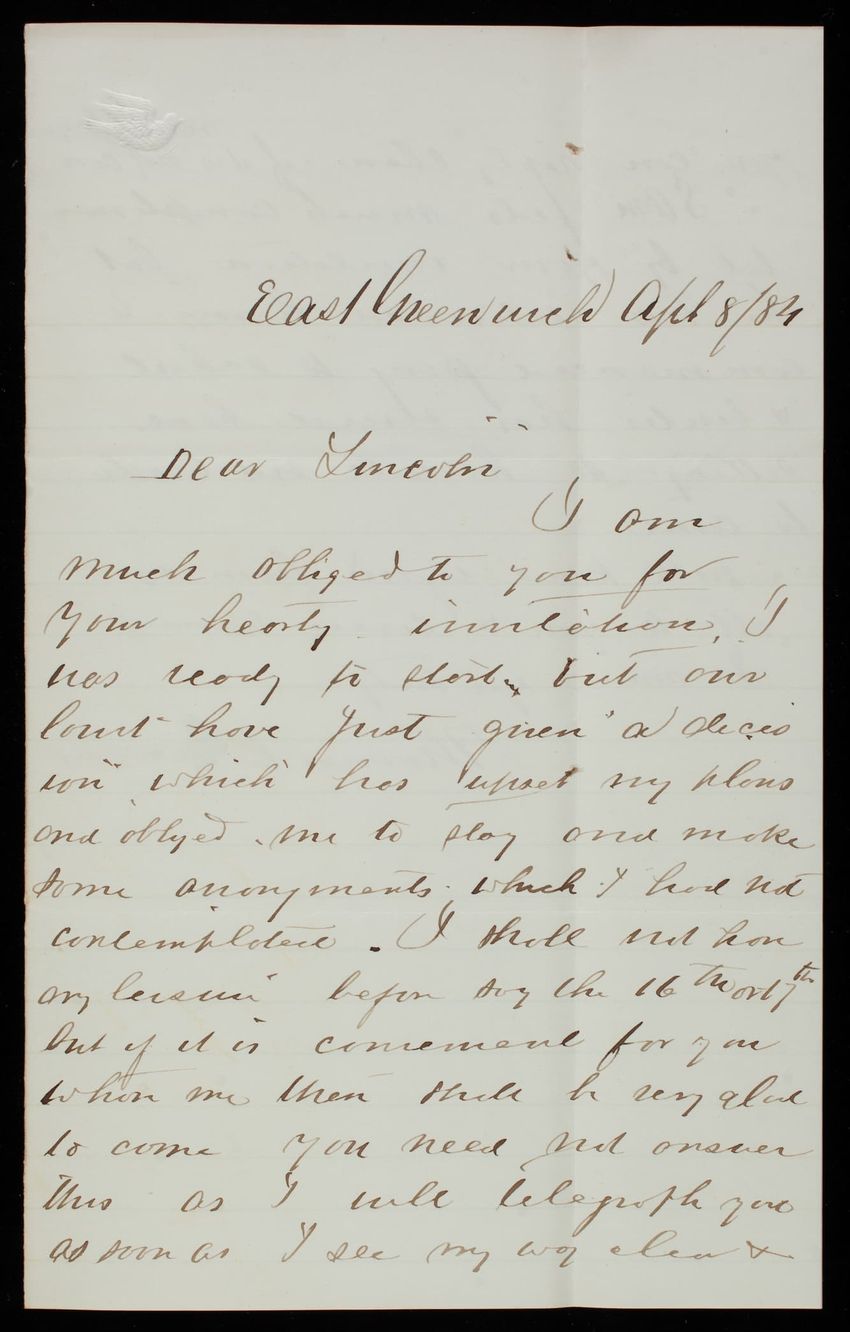 East Greenwich Apl 8/84
Dear Lincoln
I am
much obliged to you for
your hearty invitation, I
was ready to start, but our
Court have just given a decis
ion which has upset my plans
and obliged me to stay and make
some arrangments which I had not
contemplated. I shall not have
any leisure before say the 16th or 17th
but if it is convenient for you
to have me then shall be very glad
to come you need not answer
this as I will telegraph you
as soon as I see my way clear &